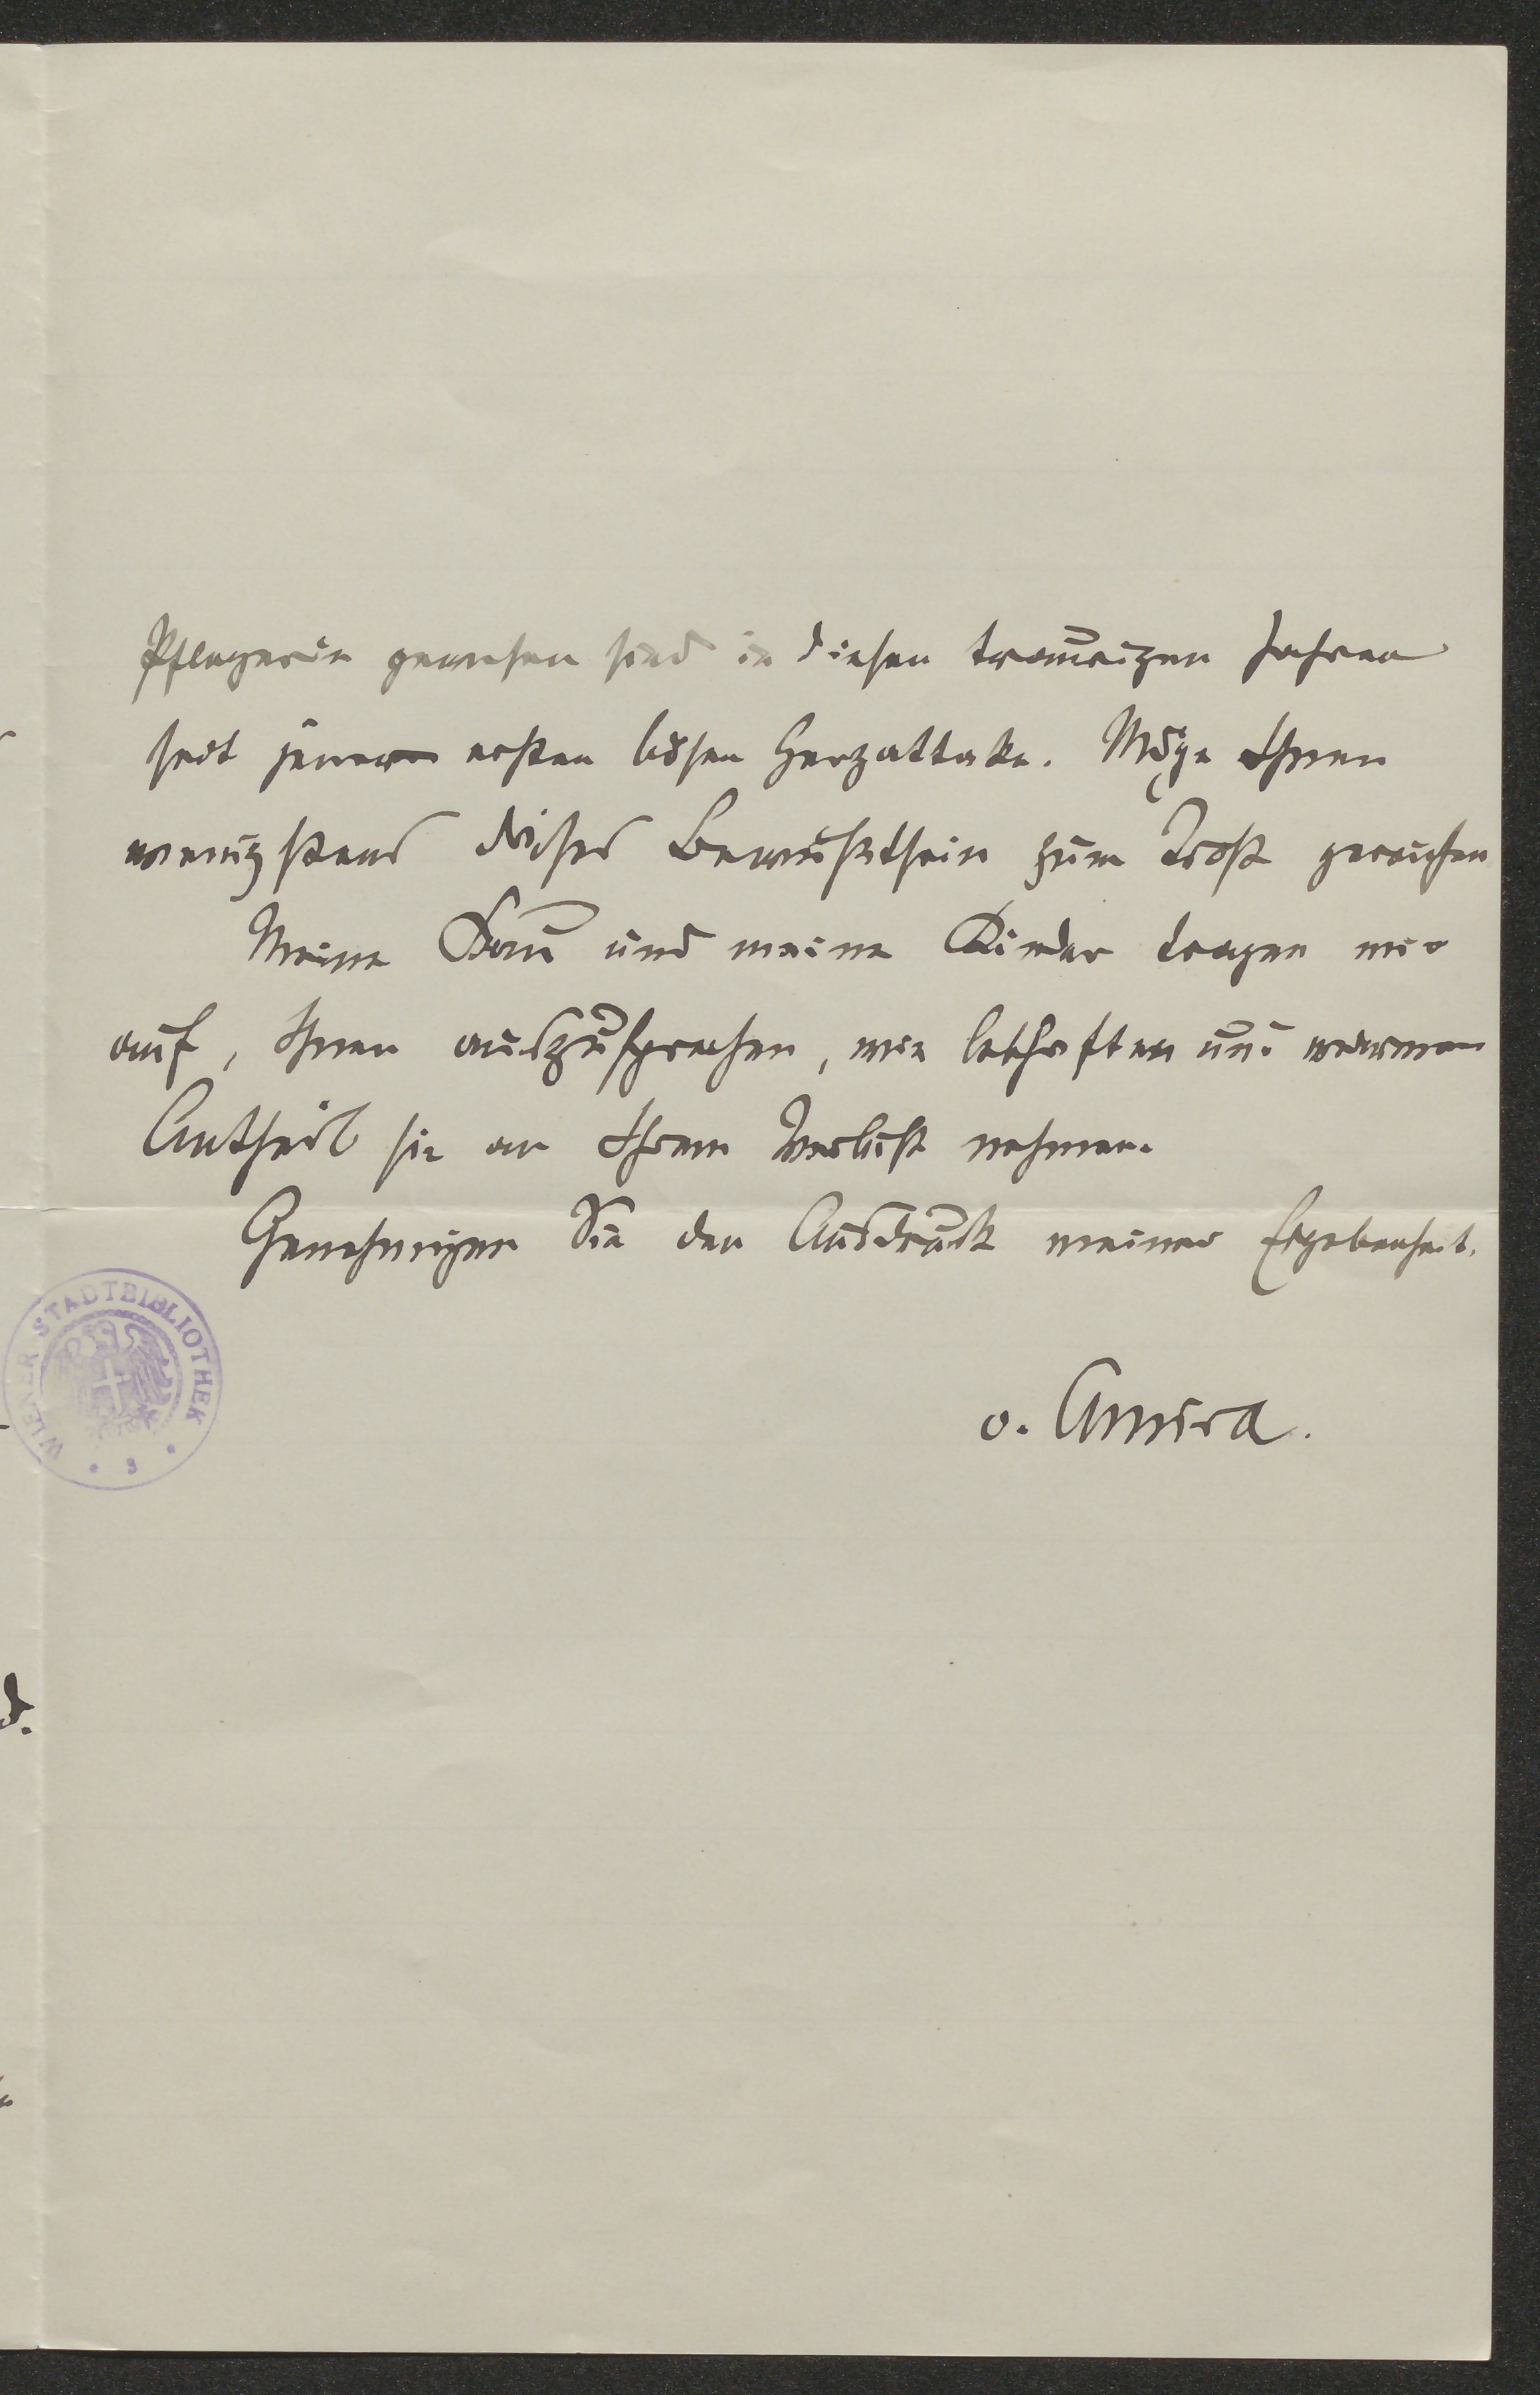 Pflegerin gewesen sind in diesen traurigen Jahren
seit jener ersten bösen Herzattake. Möge Ihnen
wenigstens dieses Bewußtsein zum Trost gereichen
Meine Frau und meine Kinder tragen mir
auf, Ihnen auszusprechen, wie lebhaften und warmen
Antheil sie an Ihrem Verlust nehmen.
Genehmigen Sie den Ausdruck meiner Ergebenheit.
v. Amira.
WIENER STADTBIBLIOTHEK